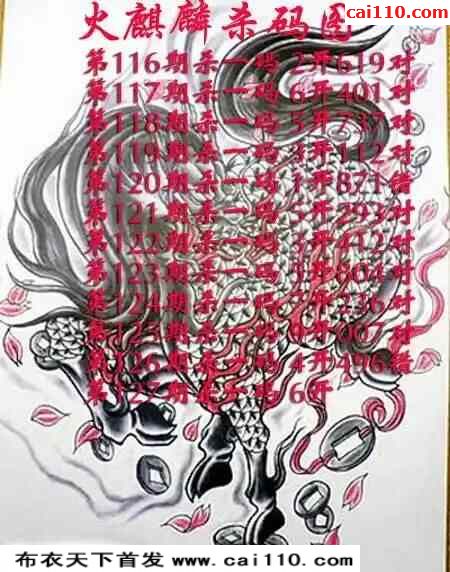 cai110.com
火麒麟杀码图
第116期杀一码 2开619对
第117期杀一码 6开401对
第118期杀一码 5开对
第119期杀一码 3开112对
第120期杀一码 1开871错
第121期杀一码 5开293对
第122期杀一码 开412对
第123期杀一码 开804对
第124期杀一码 开236对
第125期杀一码 开007对
第126期杀一码 4开496错
第127期杀一码 6开
布衣天下首发 www.cai110.com